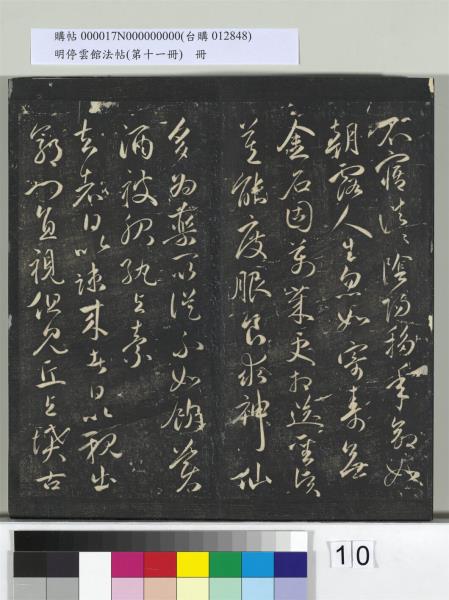 購帖 000017N000000000(台購 012848)
明停雲館法帖(第十一冊) 冊
不寤浩〻陰陽移年命如
朝露人生忽如寄壽無
金石固萬歲更相送聖賢
莫能度服食求神仙
多為藥所誤不如飲美
酒被服紈與素
去者日以疎來者日以親出
郭門直視但見丘與墳古
10